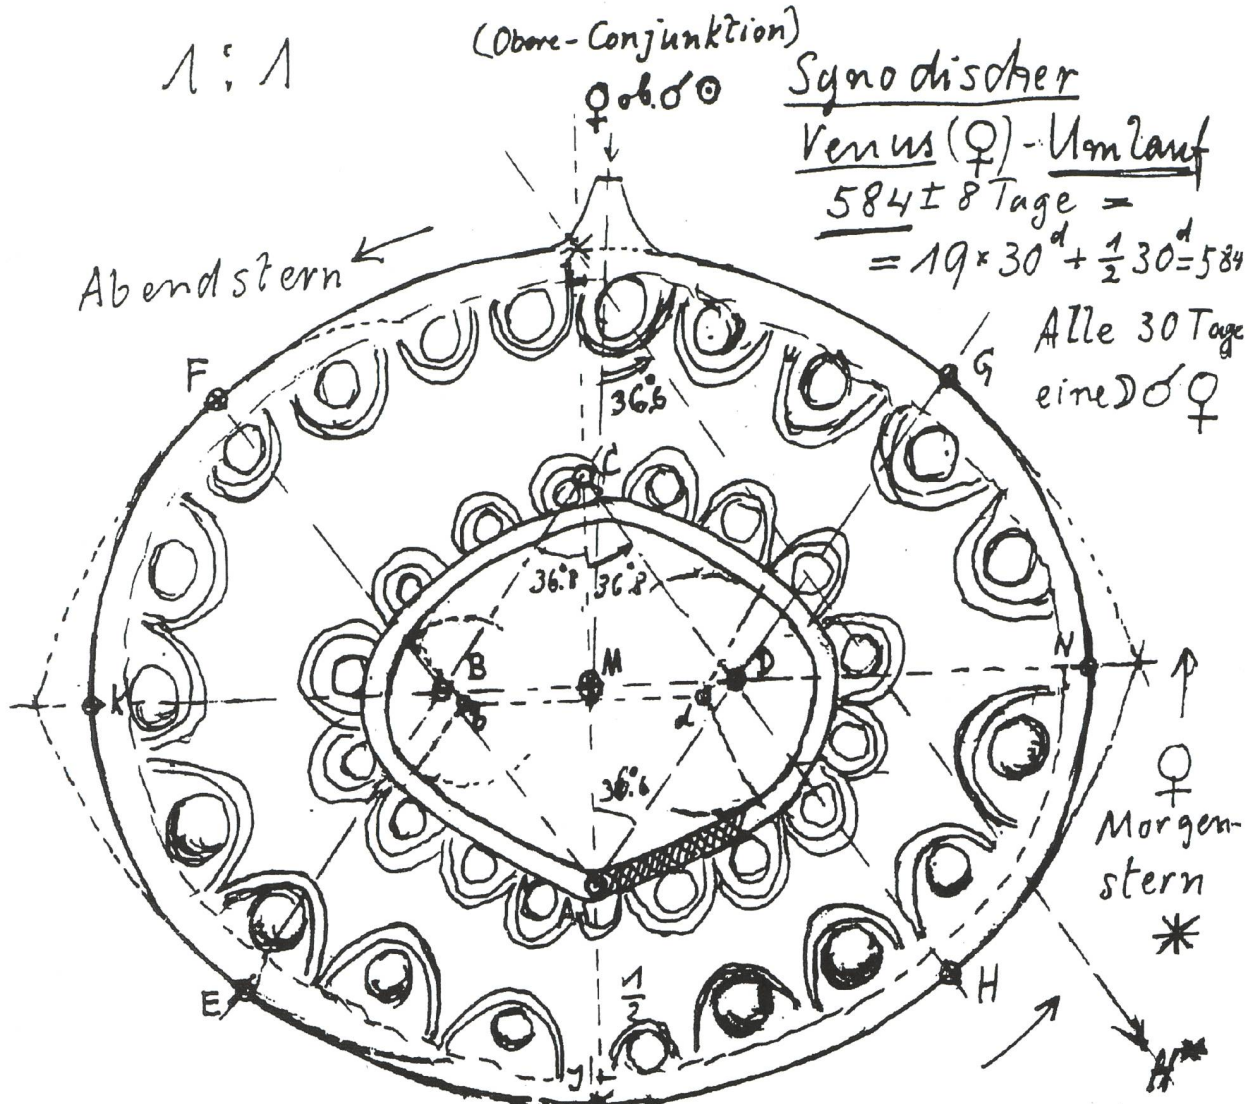 1:1
(Obere-Conjunktion)
♀ ob. ☌ ☉
Synodischer
Venus (♀)-Umlauf
584 ± 8 Tage =
= 19 × 30ᵈ + ½ 30ᵈ = 584
Alle 30 Tage
eine ☽ ☌ ♀
Abendstern
F
G
36°,6
C
36°.8 36°.8
B
M
D
b
d
K
N
36°.6
A
½
E
H
J
♀
Morgen-
stern